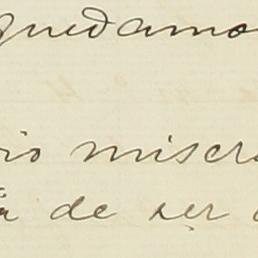 quedamos
rio misera
de ser